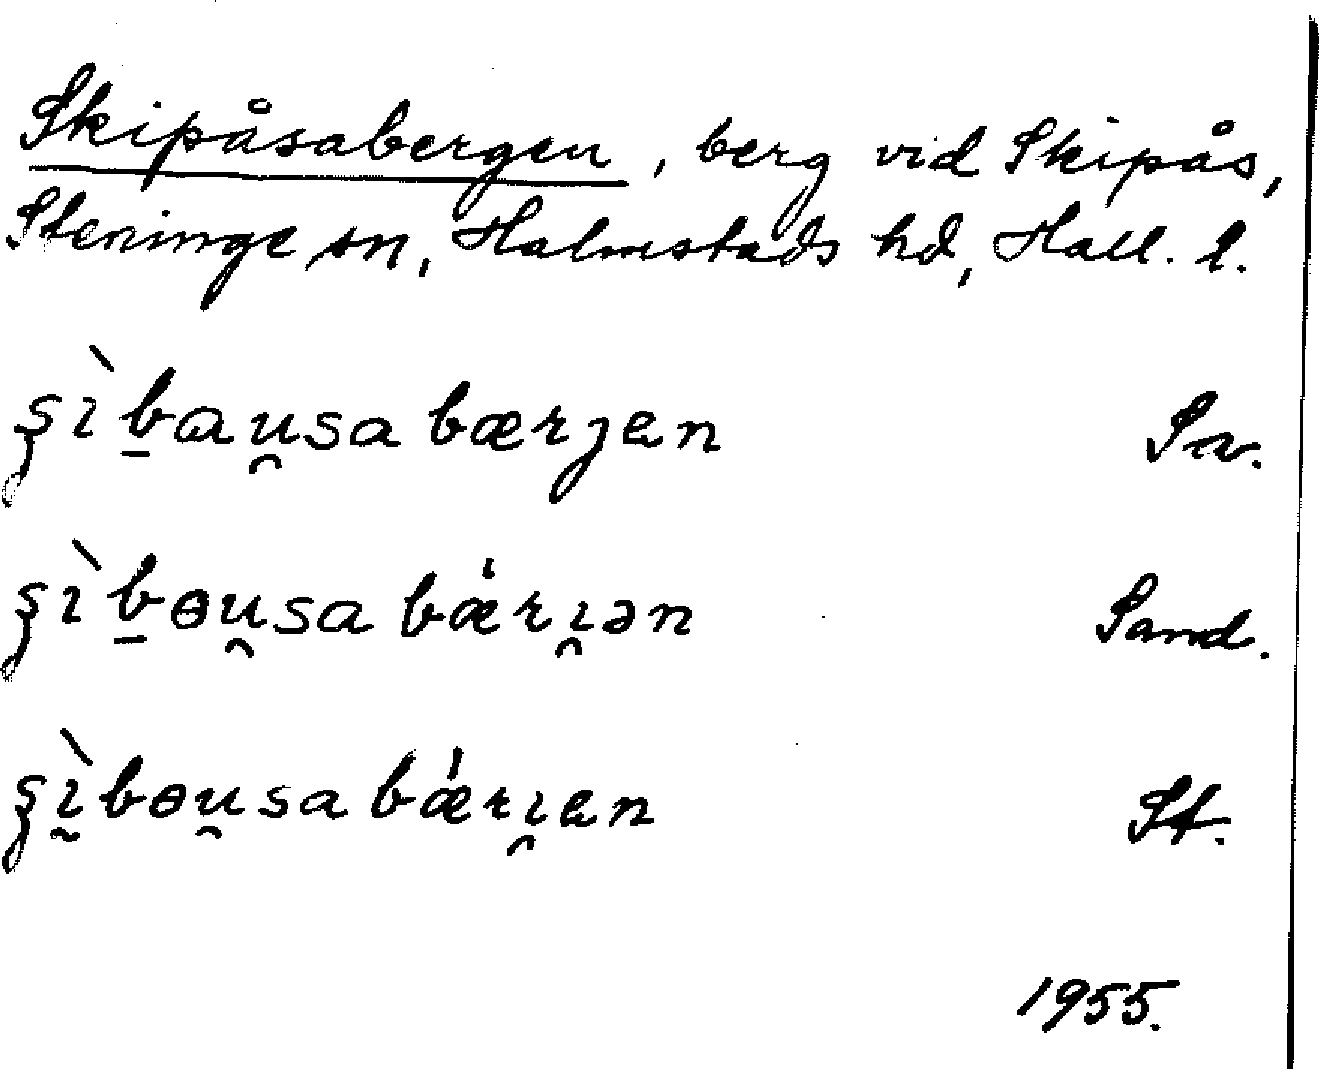 Skipåsabergen, berg vid Skipås,
Steninge sn, Halmstads hd, Hall. l.
ʂɩ̀b̠au̯sabærȷen Sv.
ʂɩ̀b̠ɵu̯sabǽrɩ̯ən Sand.
ʂɩ̰̀bɵu̯sabǽrɩ̯en St.
1955.